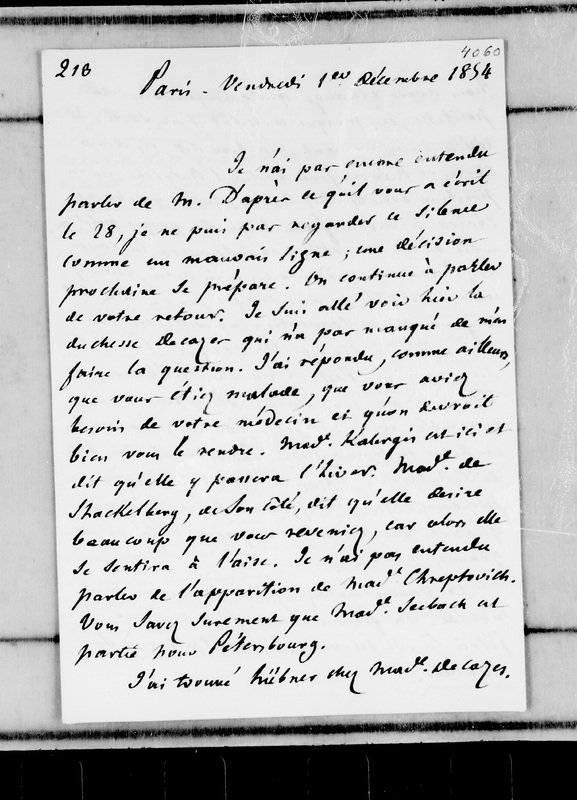 213
4060
Paris - Vendredi 1er Décembre 1854
Je n'ai pas encore entendu
parler de M. D'après ce qu'il vous a écrit
le 28, je ne puis pas regarder ce silence
comme un mauvais signe ; une décision
prochaine se prépare. On continue à parler
de votre retour. Je suis allé voir hier la
duchesse Decazes qui n'a pas manqué de m'en
faire la question. J'ai répondu, comme ailleurs,
que vous étiez malade, que vous aviez
besoin de votre médecin et qu'on devroit
bien vous le rendre. Mad. Kalergis est ici et
dit qu'elle y passera l'hiver. Made. de
Stackelberg, de son côté, dit qu'elle desire
beaucoup que vous reveniez, car alors elle
se sentira à l'aise. Je n'ai pas entendu
parler de l'apparition de Made. Chreptovich.
Vous savez surement que Made. Seebach est
partie pour Pétersbourg.
J'ai trouvé hübner chez Made. Decazes.